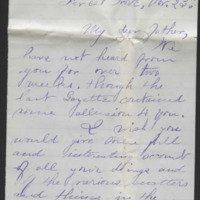 New York, Nov. 23.
My dear Father,
We
have not heard from
you for over two
weeks, though the
last Gazette contained
some allusion to you.
I wish you
would give some full
and interesting account
of all your doings and
of the various matters
and things in the